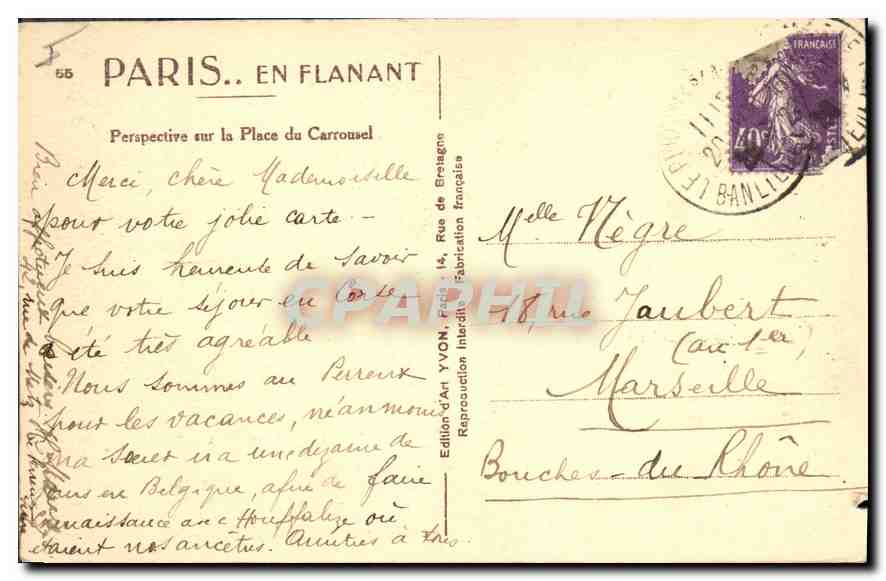 55
PARIS.. EN FLANANT
Perspective sur la Place du Carrousel
Merci, chère Mademoiselle
pour votre jolie carte. -
Je suis heureuse de savoir
que votre séjour en Corse
a été très agréable
Nous sommes au Perreux
pour les vacances, néanmoins
ma sœur ira une dizaine de
jours en Belgique, afin de faire
connaissance avec Houffalize où
étaient nos ancêtres. Amitiés à tous.
Bien affectueux
rue de Metz
Edition d'Art YVON, Paris - 14, Rue de Bretagne
Reproduction Interdite Fabrication française
CPARHIL
FRANÇAISE
40c
POSTES
BANLIEUE
Melle Nègre
18, rue Jaubert
(au 1er)
Marseille
Bouches-du-Rhône